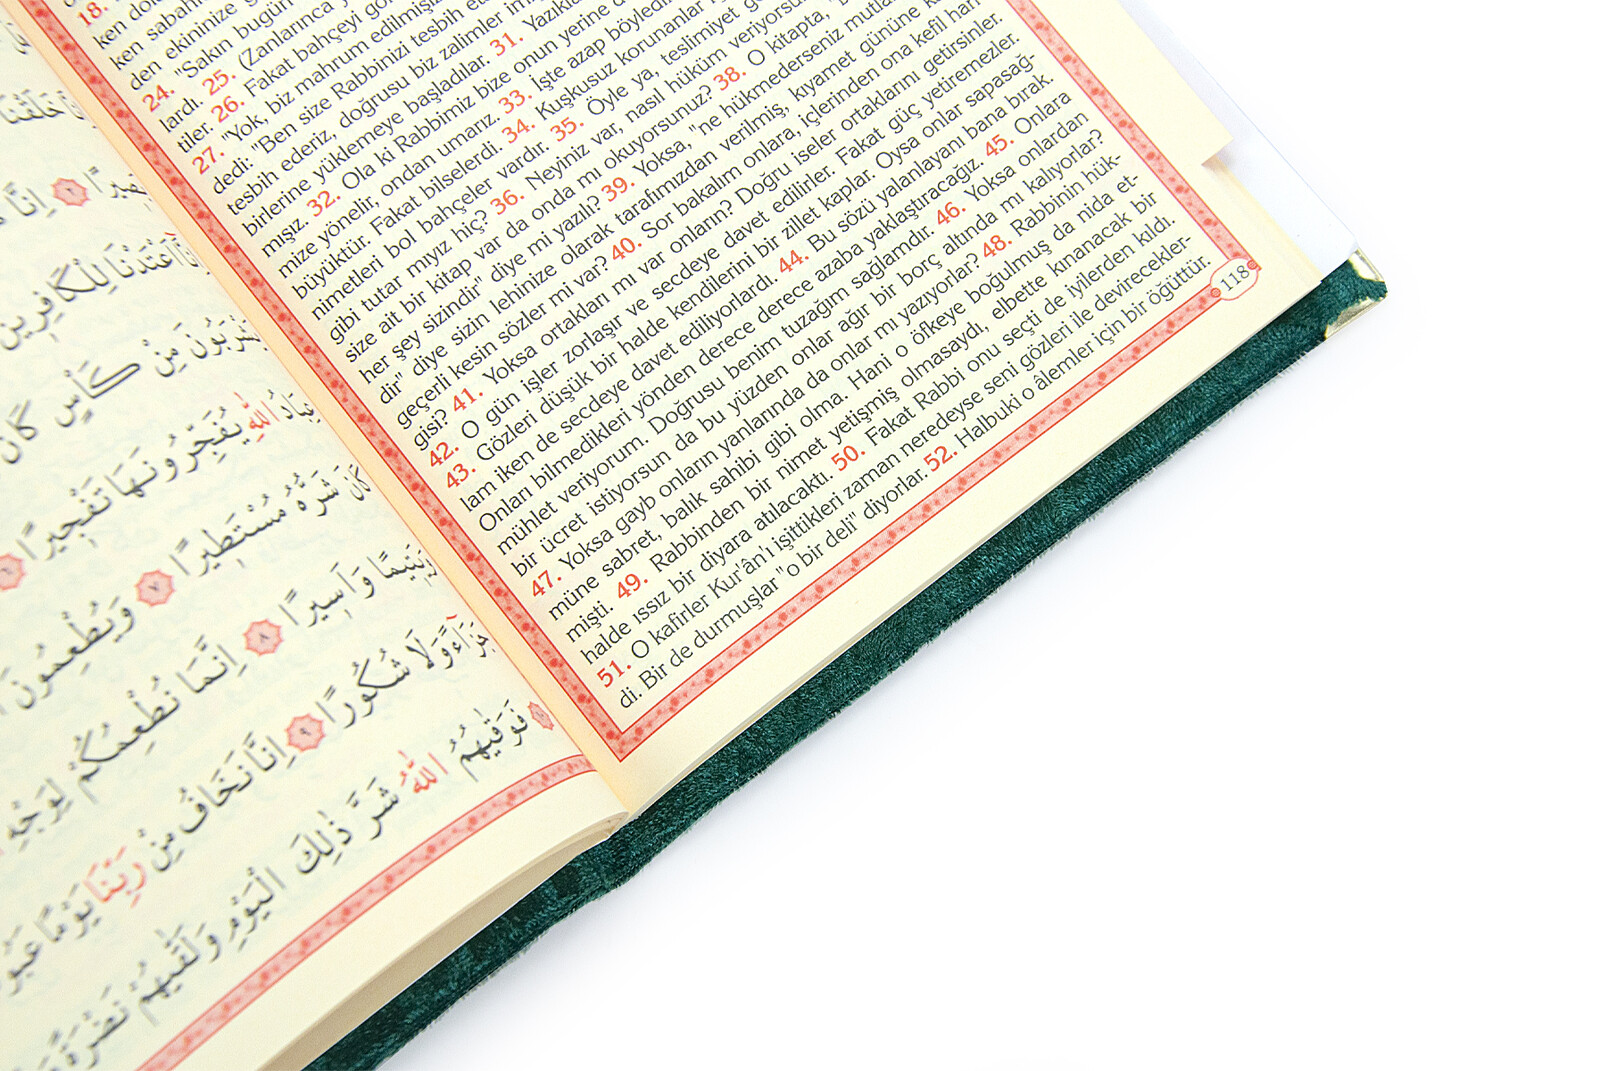 18.
ken sabahı
den ekininize g
24. "Sakın bugün
lardı. 25. (Zanlarınca y
tiler. 26. Fakat bahçeyi gör
27. "Yok, biz mahrum edilmişiz
dedi: "Ben size Rabbinizi tesbih et
tesbih ederiz, doğrusu biz zalimler im
birlerine yüklemeye başladılar. 31. Yazıkla
mışız. 32. Ola ki Rabbimiz bize onun yerine d
mize yönelir, ondan umarız. 33. İşte azap böyledir
büyüktür. Fakat bilselerdi. 34. Kuşkusuz korunanlar i
nimetleri bol bahçeler vardır. 35. Öyle ya, teslimiyet gö
gibi tutar mıyız hiç? 36. Neyiniz var, nasıl hüküm veriyorsun
size ait bir kitap var da onda mı okuyorsunuz? 38. O kitapta, "
her şey sizindir" diye mi yazılı? 39. Yoksa, "ne hükmederseniz mutla
dir" diye sizin lehinize olarak tarafımızdan verilmiş, kıyamet gününe k
geçerli kesin sözler mi var? 40. Sor bakalım onlara, içlerinden ona kefil han
gisi? 41. Yoksa ortakları mı var onların? Doğru iseler ortaklarını getirsinler.
42. O gün işler zorlaşır ve secdeye davet edilirler. Fakat güç yetiremezler.
43. Gözleri düşük bir halde kendilerini bir zillet kaplar. Oysa onlar sapasağ-
lam iken de secdeye davet ediliyorlardı. 44. Bu sözü yalanlayanı bana bırak.
Onları bilmedikleri yönden derece derece azaba yaklaştıracağız. 45. Onlara
mühlet veriyorum. Doğrusu benim tuzağım sağlamdır. 46. Yoksa onlardan
bir ücret istiyorsun da bu yüzden onlar ağır bir borç altında mı kalıyorlar?
47. Yoksa gayb onların yanlarında da onlar mı yazıyorlar? 48. Rabbinin hük-
müne sabret, balık sahibi gibi olma. Hani o öfkeye boğulmuş da nida et-
mişti. 49. Rabbinden bir nimet yetişmiş olmasaydı, elbette kınanacak bir
halde ıssız bir diyara atılacaktı. 50. Fakat Rabbi onu seçti de iyilerden kıldı.
51. O kafirler Kur'ân'ı işittikleri zaman neredeyse seni gözleri ile devirecekler-
di. Bir de durmuşlar "o bir deli" diyorlar. 52. Halbuki o âlemler için bir öğüttür.
118
اِنَّا
اَعْتَدْنَا لِلْكَافِرِينَ
مِنْ كَأْسٍ كَانَ
اللّٰهِ يُفَجِّرُونَهَا تَفْجِيرًا
كَانَ شَرُّهُ مُسْتَطِيرًا ٧ وَيُطْعِمُونَ
وَاَسِيرًا ٨ اِنَّمَا نُطْعِمُكُمْ لِوَجْهِ
وَلَا شُكُورًا ٩ اِنَّا نَخَافُ مِنْ رَبِّنَا يَوْمًا
فَوَقٰيهُمُ اللّٰهُ شَرَّ ذٰلِكَ الْيَوْمِ وَلَقّٰيهُمْ نَضْرَةً